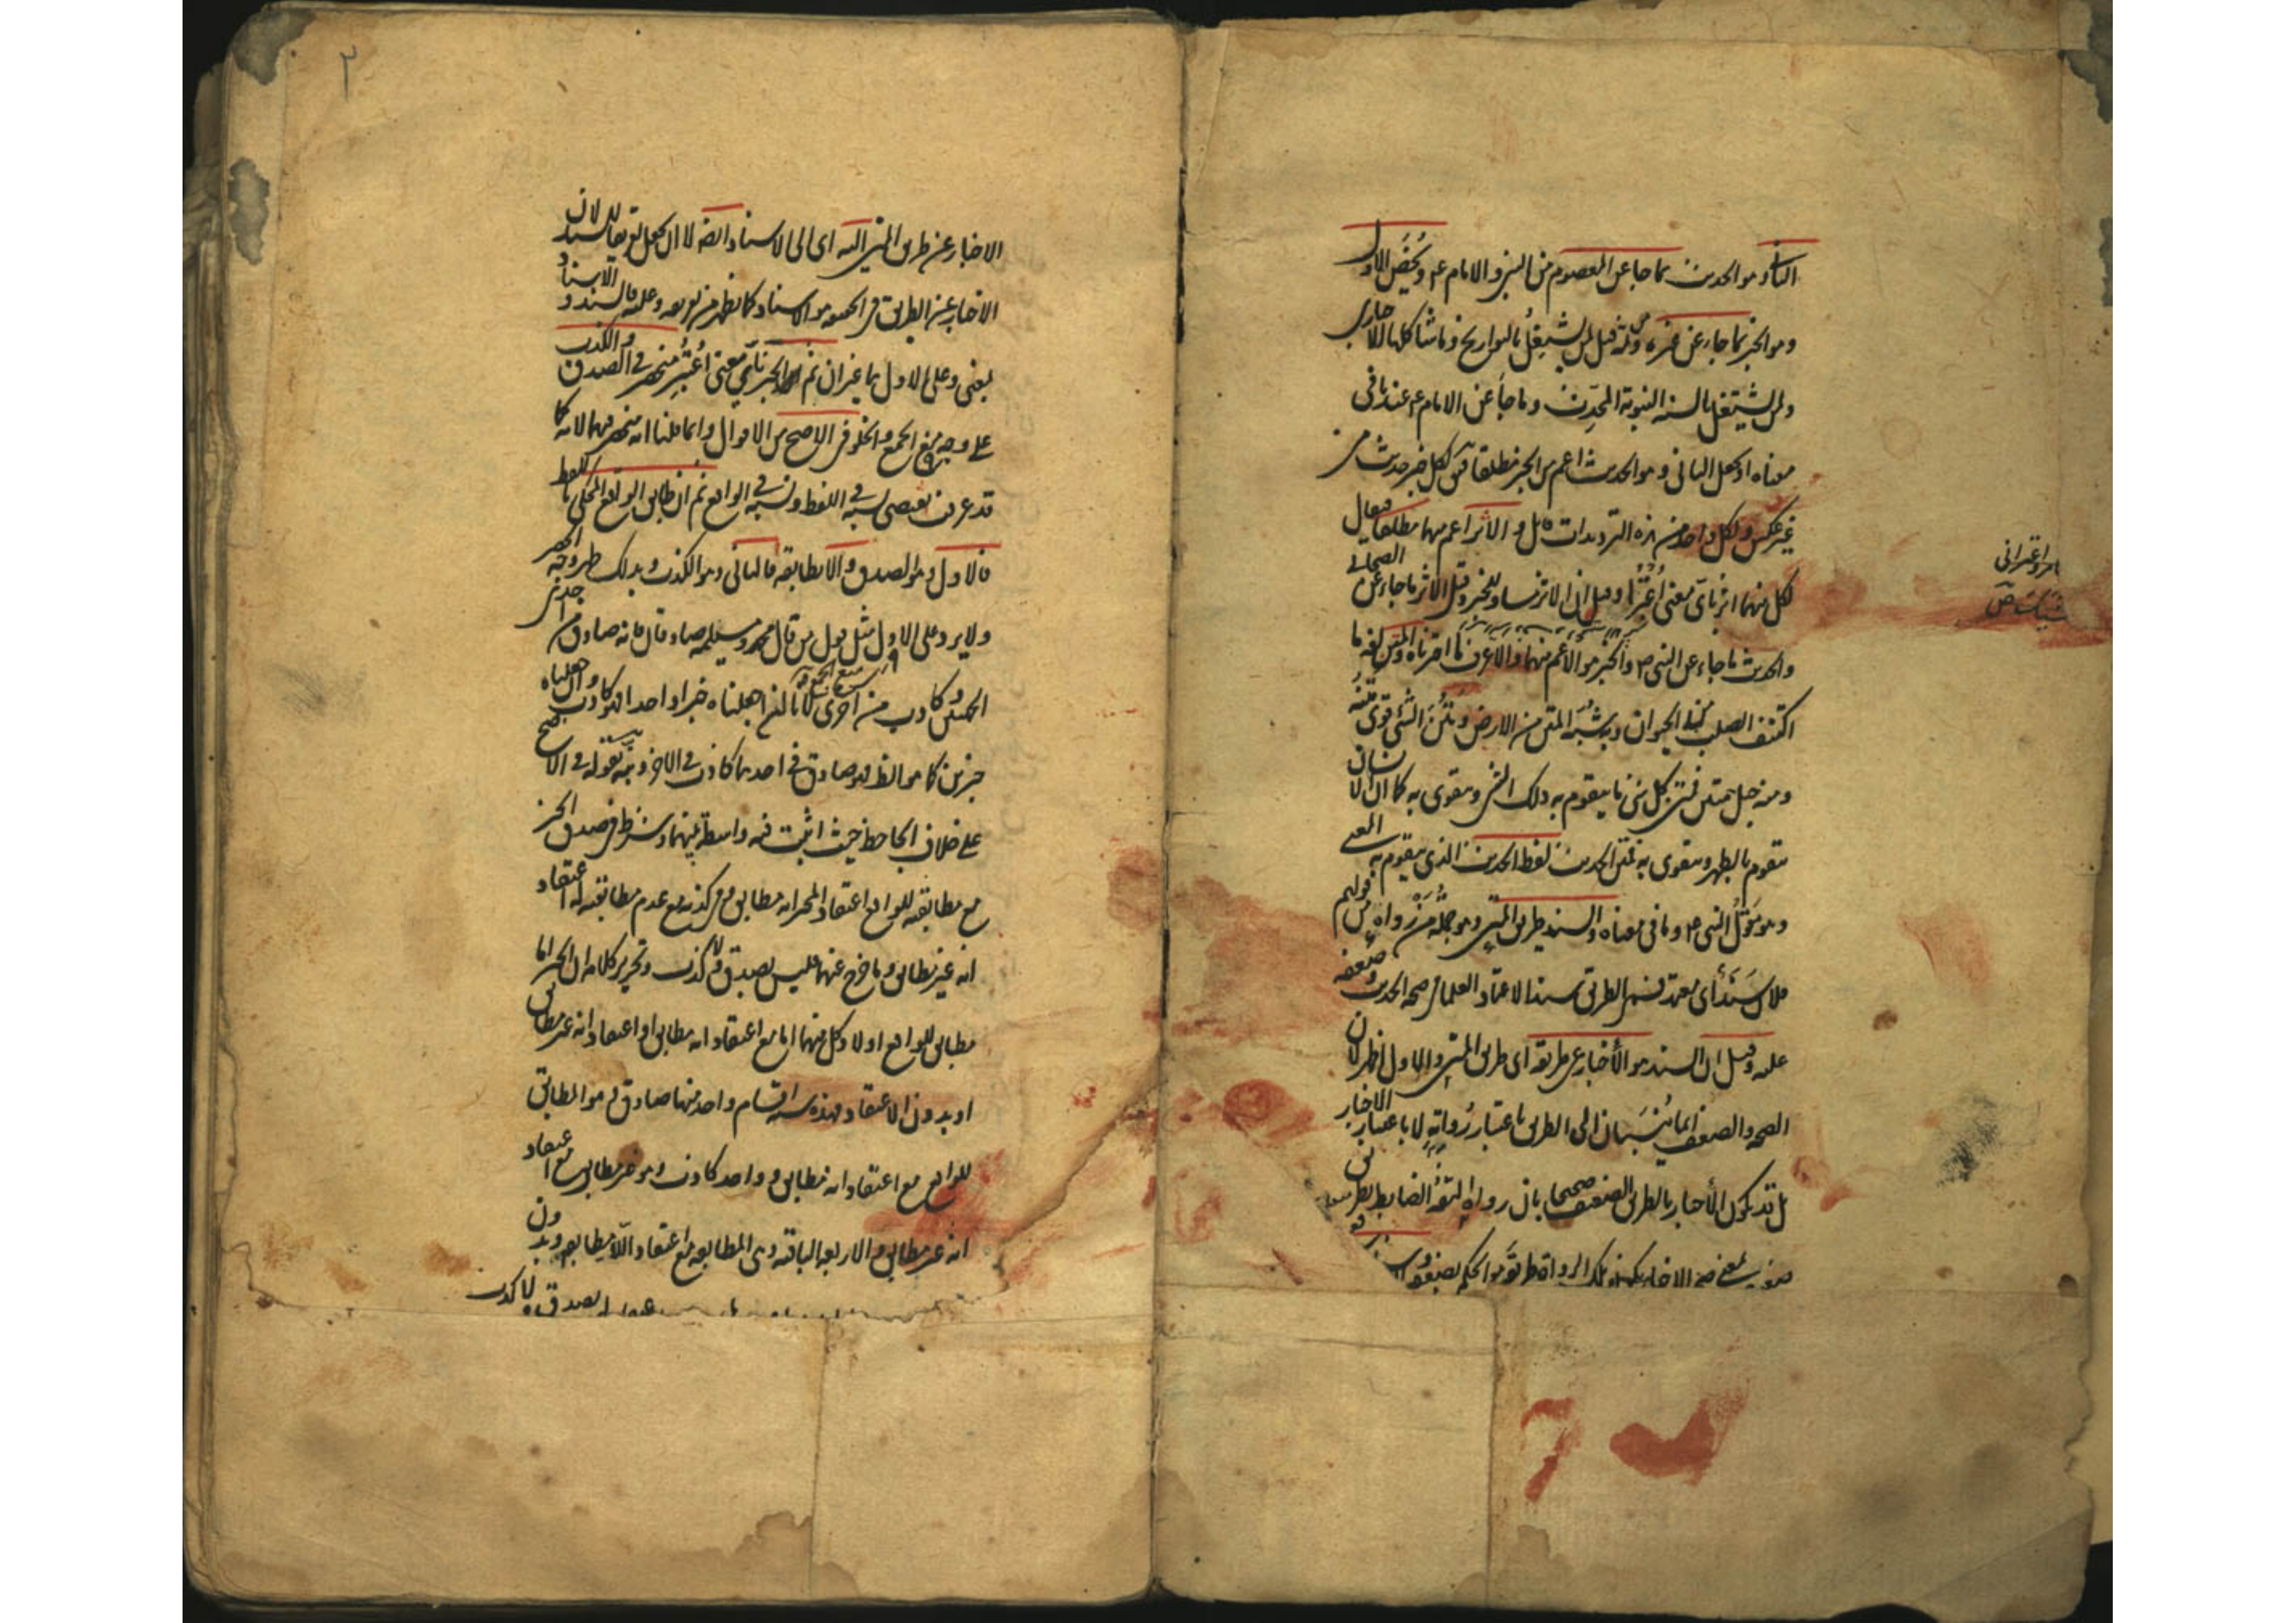 الثانى وهو الحديث بما جاء عن المعصوم من النبي والامام ع ويخص الاول
وهو الخبر بما جاء عن غيره ومن ثم قيل لمن يشتغل بالتواريخ وما شاكلها الاخبارى
ولمن يشتغل بالسنه النبوية المحدث وما جاء عن الامام ع عندنا فى
معناه او يجعل الثانى وهو الحديث اعم من الخبر مطلقا فيق لكل خبر حديث من
غير عكس ولكل واحد من هذه الترديدات قائل والاثر اعم منهما مطلقا فيقال
لكل منهما اثر باى معنى اعتبرا وقيل ان الاثر مساو للخبر وقيل الاثر ما جاء عن الصحابى
والحديث ما جاء عن النبي ص والخبر هو الاعم منهما والاعرف ما اخترناه والمتن لغة ما
اكتنف الصلب من الحيوان وبه شبه المتن من الارض ومتن الشئ قوى متنه
ومنه حبل متين فمتن كل شئ ما يتقوم به ذلك الشئ ويتقوى به كما ان الانسان
يتقوم بالظهر ويتقوى به فمتن الحديث لفظ الحديث الذى يتقوم به المعنى
وهو مقول النبي ص وما فى معناه والسند طريق المتن وهو جملة من رواه من قولهم
فلان سند اى معتمد فسمى الطريق سندا لاعتماد العلماء فى صحة الحديث وضعفه
عليه وقيل ان السند هو الاخبار عن طريقه اى طريق المتن والاول اظهر لان
الصحة والضعف انما ينسبان الى الطريق باعتبار رواته لا باعتبار الاخبار
بل قد يكون الاخبار بالطريق الضعيف صحيحا بان رواه الثقة الضابط بطريق
الاخبار عن طريق المتن اليه اى الى الاسناد ايضا لا ان يجعل تعريفا للسند لان
الاخبار عن الطريق فى الحقيقة هو الاسناد كما يظهر من تعريفه وعليه فالسند والاسناد
بمعنى وعلى الاول هما غيران ثم الخبر باى معنى اعتبر منحصر فى الصدق والكذب
على وجه منع الجمع والخلو فى الاصح من الاقوال وانما قلنا انه منحصر فيهما لانه كما
قد عرفت يقتضى نسبة فى اللفظ ونسبة فى الواقع ثم ان طابق الواقع المحكى باللفظ
فالاول وهو الصدق والا يطابقه فالثانى وهو الكذب وبذلك ظهر وجه الحصر
ولا يرد على الاول مثل قول من قال محمد ومسيلمة صادقان فانه صادق من احدى
الجهتين وكاذب من اخرى لانا لنا اما ان جعلناه خبرا واحدا فهو كاذب وان جعلناه
خبرين كما هو الظ فهو صادق فى احدهما كاذب فى الاخر ونبه بقوله فى الاصح
على خلاف الجاحظ حيث اثبت فيه واسطة بينهما وشرط فى صدق الخبر
مع مطابقته للواقع اعتقاد المخبر انه مطابق وفى كذبه مع عدم مطابقته له اعتقاد
انه غير مطابق وما خرج عنهما فليس بصدق ولا كذب وتحرير كلامه ان الخبر اما
مطابق للواقع او لا وكل منهما اما مع اعتقاد انه مطابق او اعتقاد انه غير مطابق
او بدون الاعتقاد فهذه ستة اقسام واحد منها صادق وهو المطابق
للواقع مع اعتقاد انه مطابق وواحد كاذب وهو غير مطابق مع اعتقاد
انه غير مطابق والاربعة الباقية وهى المطابقة مع اعتقاد اللا مطابقة وبدون
بصدق ولا كذب